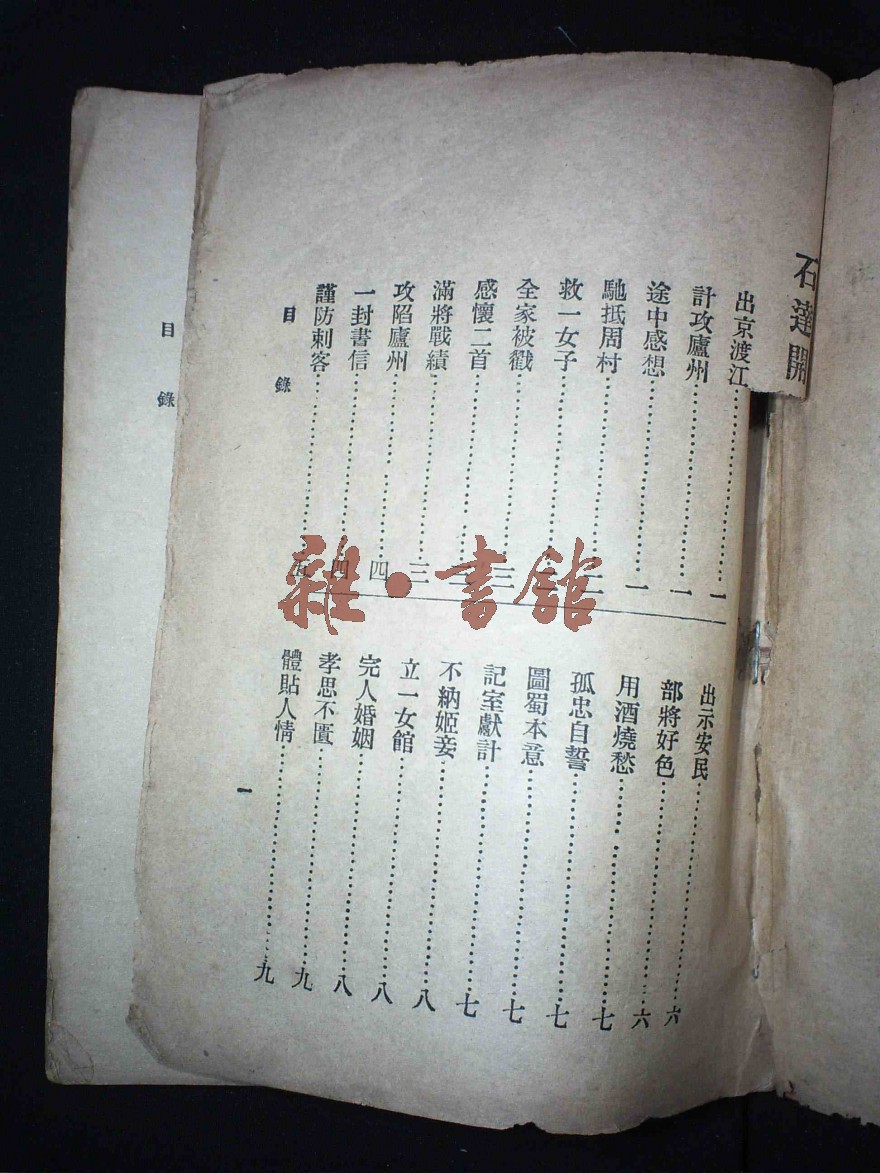 石達開
出京渡江……一
計攻廬州……一
途中感想……一
馳抵周村……二
救一女子……
全家被戮……三
感懷二首……
滿將戰績……三
攻陷廬州……四
一封書信……四
謹防刺客……五
出示安民……六
部將好色……六
用酒燒愁……七
孤忠自誓……七
圖蜀本意……七
記室獻計……七
不納姬妾……八
立一女館……八
完人婚姻……八
孝思不匱……九
體貼人情……九
目錄
一
目錄
雜·書館